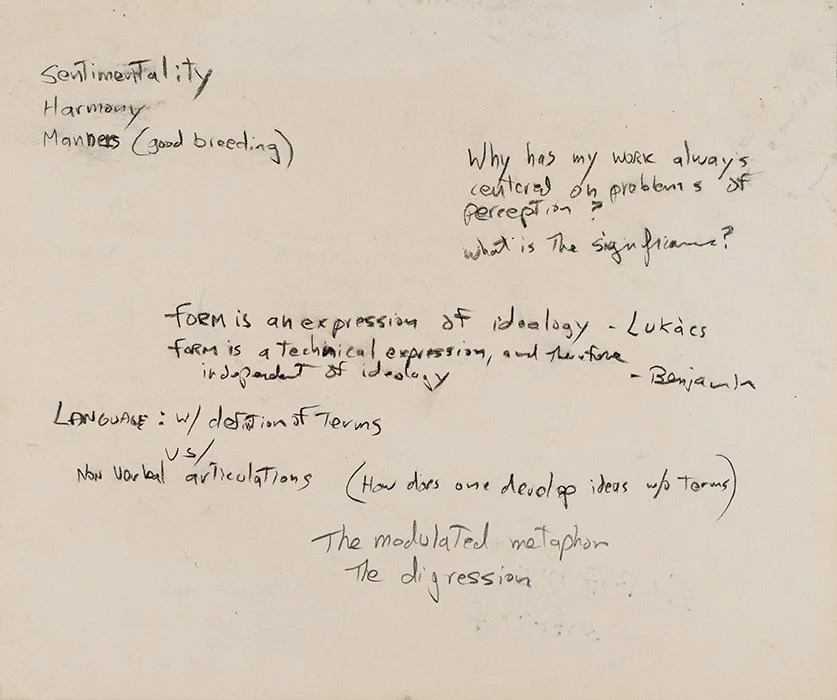 Sentimentality
Harmony
Manners (good breeding)
Why has my work always
centered on problems of
perception?
what is The significance?
FORM is an expression of ideology - Lukàcs
FORM is a Technical expression, and Therefore
independent of ideology
- Benjamin
LANGUAGE: w/ defition of Terms
VS/
Non Verbal articulations (How does one develop ideas w/o Terms)
The modulated metaphor
The digression